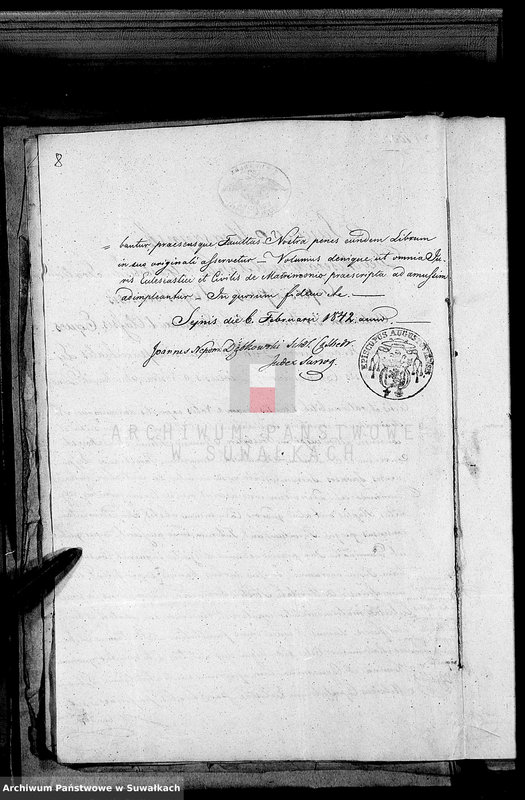 8
= bantur, praesensque Facultas Nostra penes eundem Librum
in suo originali asservetur. — Volumus denique, ut omnia Ju-
ris Eclesiastici et Civilis de Matrimonio praescripta ad amussim
adimpleantur. — In quorum fidem etc. —
Sejnis die 6. Februarii 1842. anno
Joannes Nepom
Judex Surrog.
EPISCOPUS AUGUS
ARCHIWUM PAŃSTWOWE
W SUWAŁKACH
Archiwum Państwowe w Suwałkach